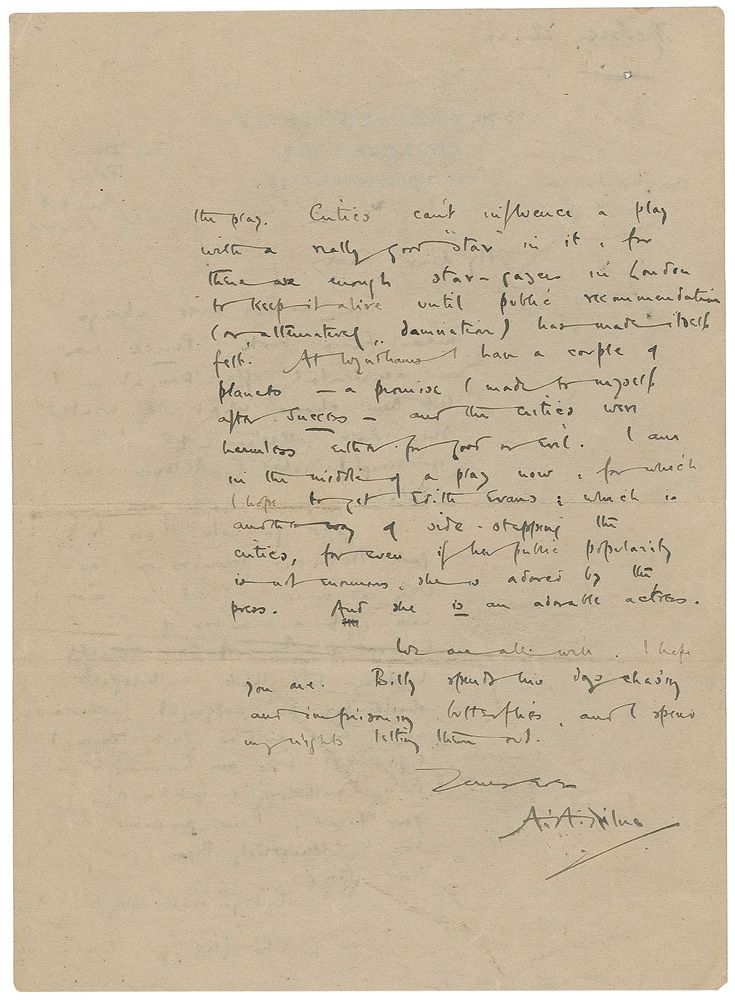 the play. Critics can't influence a play
with a really good "star" in it, for
there are enough star-gazers in London
to keep it alive until public recommendation
(or alternatively, damnation) has made itself
felt. At Wyndhams I have a couple of
planets — a promise I made to myself
after Success — and the critics were
harmless either for good or evil. I am
in the middle of a play now, for which
I hope to get Edith Evans; which is
another way of side-stepping the
critics, for even if her public popularity
is not enormous, she is adored by the
press. And she is an adorable actress.
We are all well. I hope
you are. Billy spends his days chasing
and imprisoning butterflies, and I spend
my nights letting them out.
Yours ever
A. A. Milne